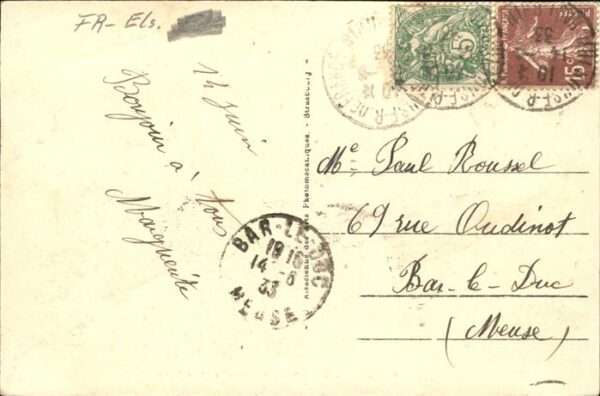 FR- Els.
14 Juin
Bonjour à
tous
Marguerite
Photomécaniques. - Strasbourg
BAR-LE-DUC
19 15
14 -6
33
MEUSE
5
15c
33
Me Paul Roussel
69 rue Oudinot
Bar-le-Duc
(Meuse)